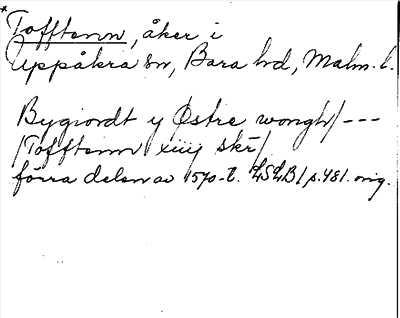 *Tofftenn, åker i
Uppåkra sn, Bara hd, Malm. l.
Bygiordt y Østre wongh/ ---
/Tofftenn xiiij skr/
förra delen av 1570-t. LSLB/p.481. orig.